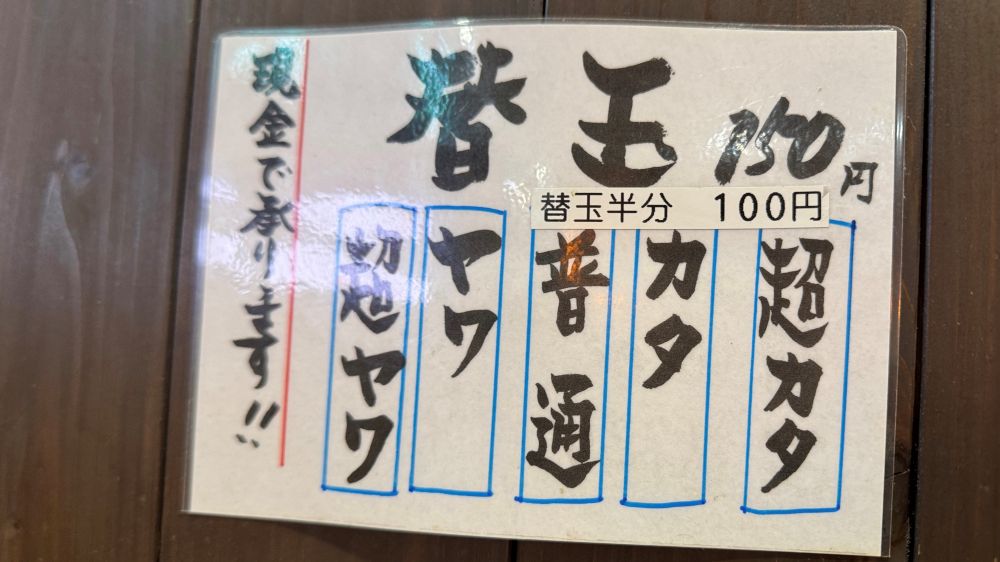 替玉 150円
替玉半分 100円
超カタ
カタ
普通
ヤワ
超ヤワ
現金で承ります!!